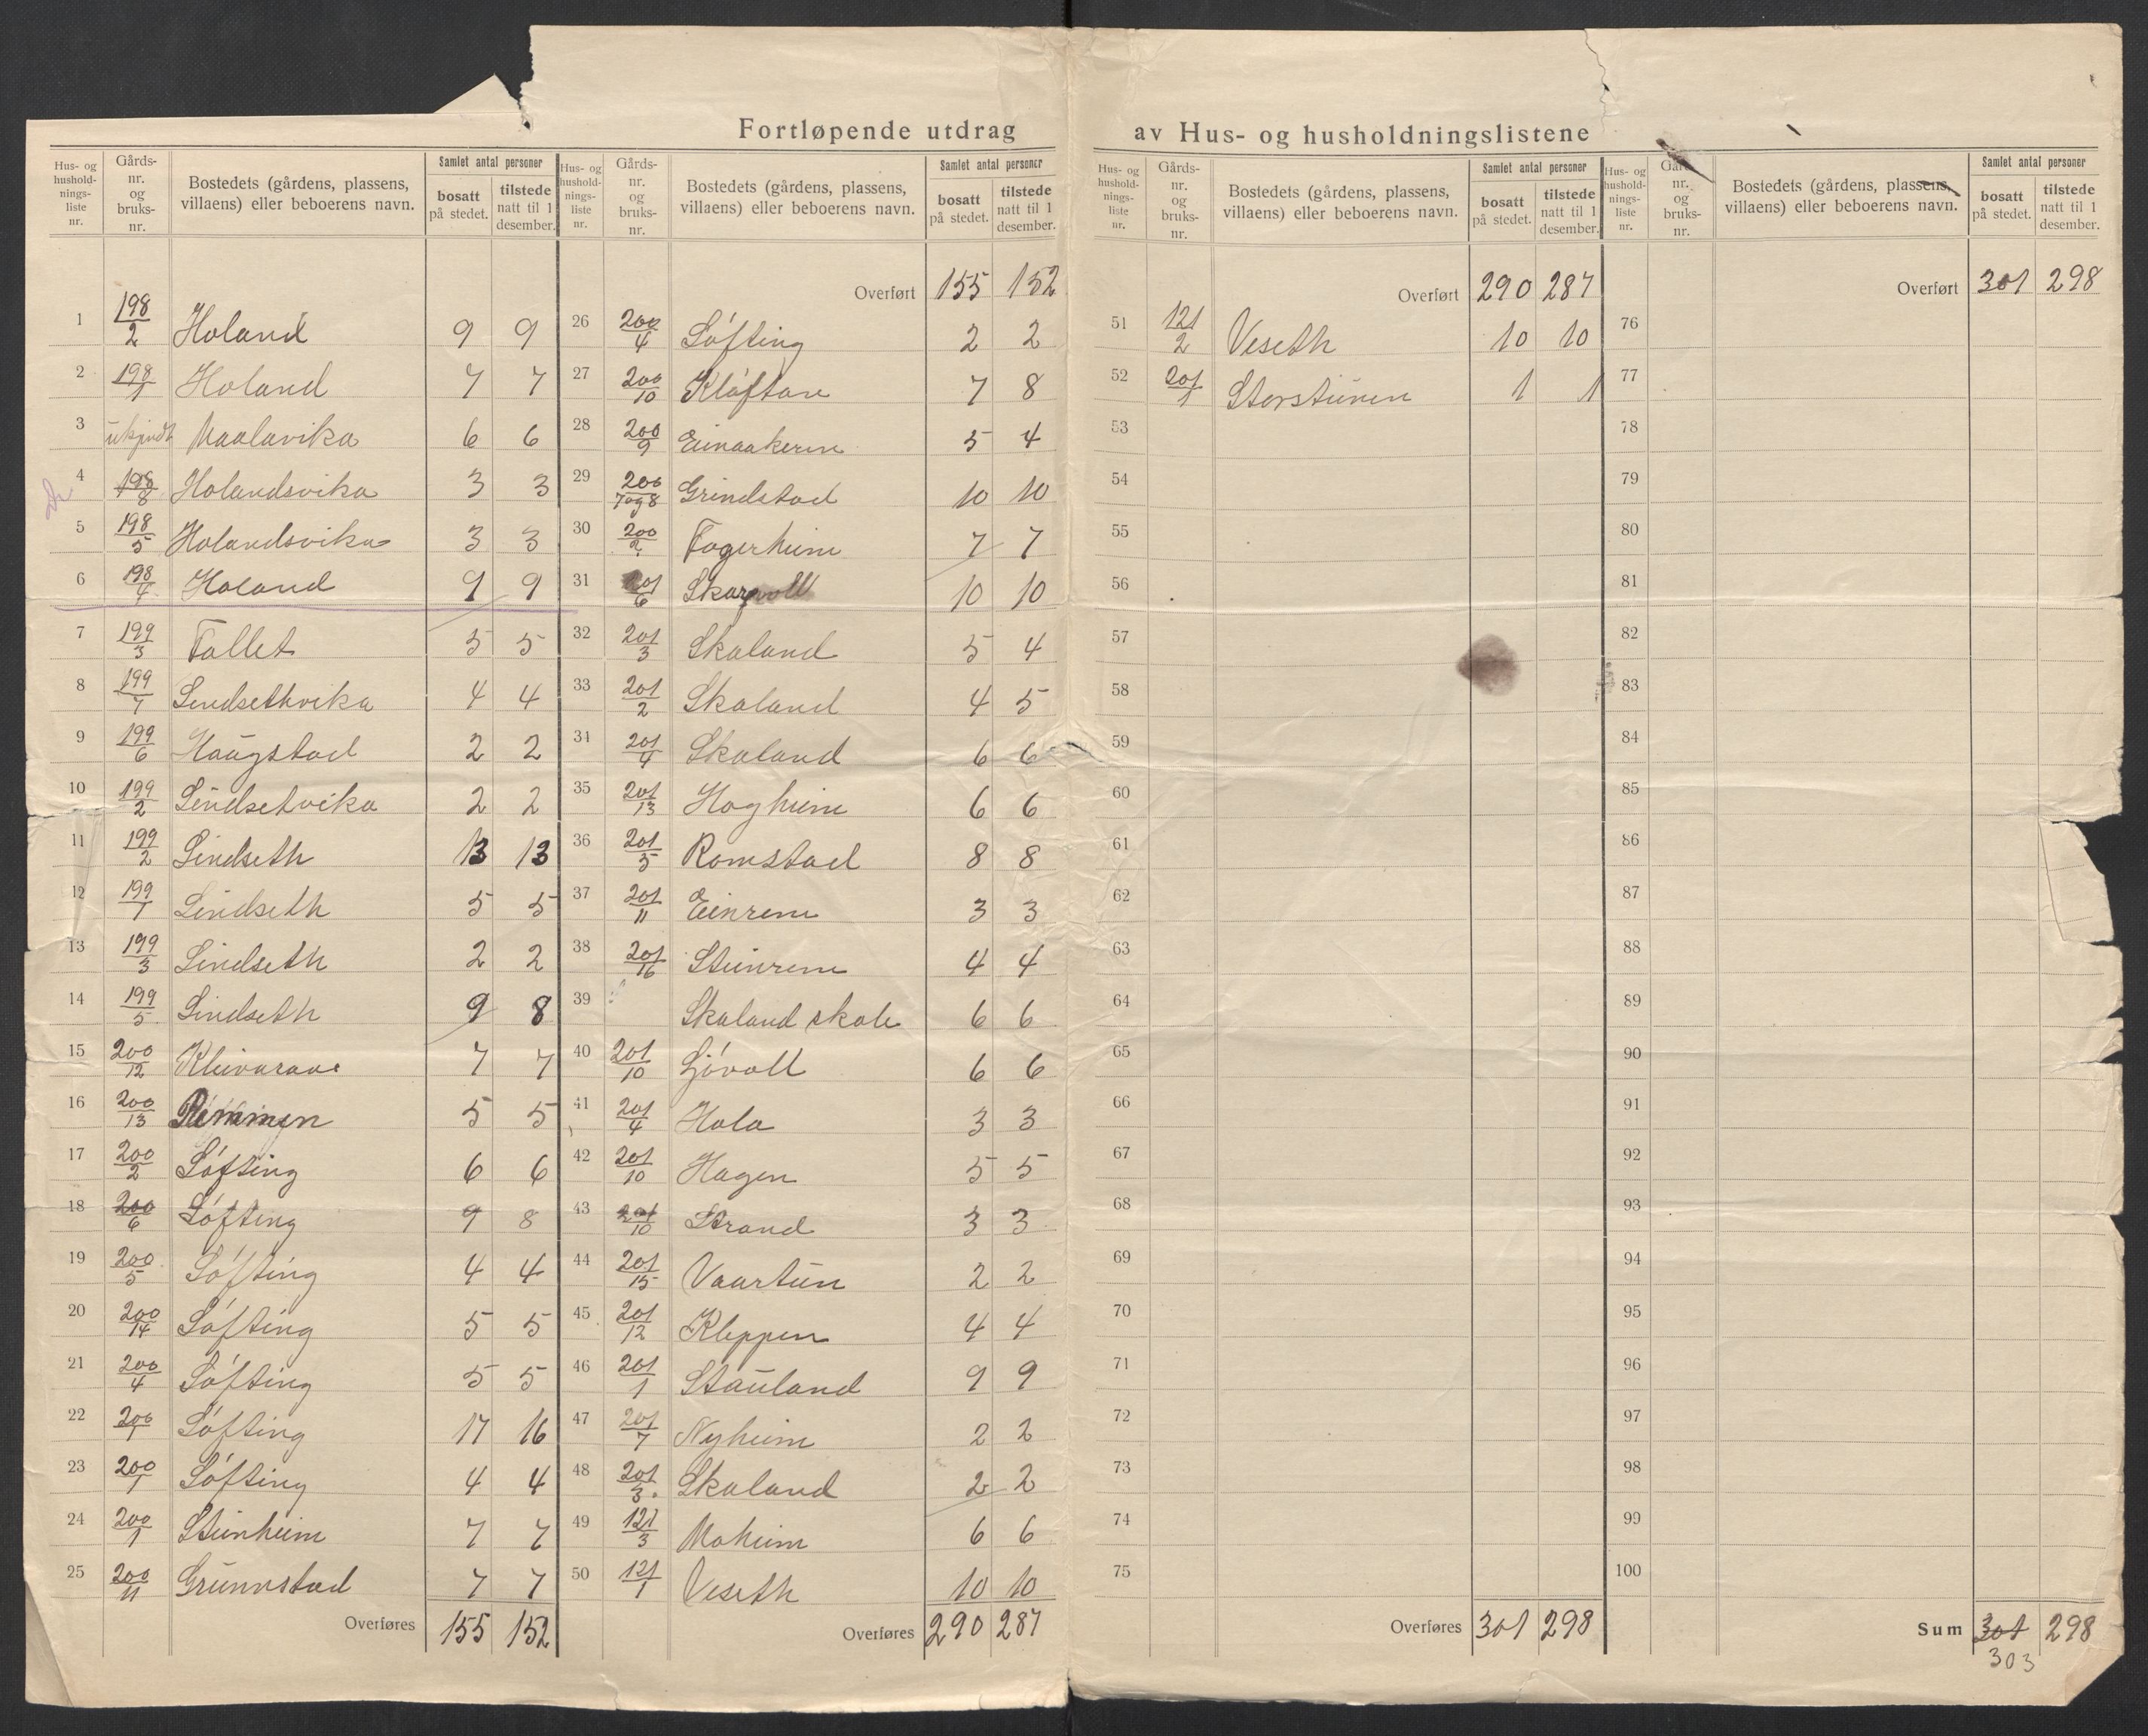 Fortløpende utdrag av Hus- og husholdningslistene
Hus- og hushold-nings-liste nr. | Gårds-nr. og bruks-nr. | Bostedets (gårdens, plassens, villaens) eller beboerens navn. | Samlet antal personer | bosatt på stedet. | tilstede natt til 1 desember.
1 198/2 Holand 9 9
2 198/1 Holand 7 7
3 ukjendt Maalavika 6 6
4 198/8 Holandsvika 3 3
5 198/5 Holandsvika 3 3
6 198/4 Holand 9 9
7 199/3 Fallet 5 5
8 199/7 Lindsethvika 4 4
9 199/6 Haugstad 2 2
10 199/2 Lindsetvika 2 2
11 199/2 Lindseth 13 13
12 199/1 Lindseth 5 5
13 199/3 Lindseth 2 2
14 199/5 Lindseth 9 8
15 200/12 7 7
16 200/13 Remmen 5 5
17 200/2 Løfting 6 6
18 200/6 Løfting 9 8
19 200/5 Løfting 4 4
20 200/14 Løfting 5 5
21 200/4 Løfting 5 5
22 200/1 Løfting 17 16
23 200/1 Løfting 4 4
24 200/1 Steinheim 7 7
25 200/11 Grunnstad 7 7
Overføres 155 152
Hus- og hushold-nings-liste nr. | Gårds-nr. og bruks-nr. | Bostedets (gårdens, plassens, villaens) eller beboerens navn. | Samlet antal personer | bosatt på stedet. | tilstede natt til 1 desember.
Overført 155 152
26 200/4 Løfting 2 2
27 200/10 Kløftan 7 8
28 200/9 Einaakeren 5 4
29 200/7og8 Grindstad 10 10
30 200/2 Fagerheim 7 7
31 201/6 Skarvoll 10 10
32 201/3 Skaland 5 4
33 201/2 Skaland 4 5
34 201/4 Skaland 6 6
35 201/13 Hagheim 6 6
36 201/5 Romstad 8 8
37 201/11 Einrem 3 3
38 201/16 Steinrem 4 4
39 Skaland skole 6 6
40 201/10 Sjøvoll 6 6
41 201/4 Hola 3 3
42 201/10 Hagen 5 5
43 201/10 Strand 3 3
44 201/15 Vaartun 2 2
45 201/12 Kleppen 4 4
46 201/1 Stauland 9 9
47 201/7 Nyheim 2 2
48 201/3 Skaland 2 2
49 121/3 Moheim 6 6
50 121/1 Veseth 10 10
Overføres 290 287
Hus- og hushold-nings-liste nr. | Gårds-nr. og bruks-nr. | Bostedets (gårdens, plassens, villaens) eller beboerens navn. | Samlet antal personer | bosatt på stedet. | tilstede natt til 1 desember.
Overført 290 287
51 121/2 Veseth 10 10
52 201/1 Storstunen 1 1
53
54
55
56
57
58
59
60
61
62
63
64
65
66
67
68
69
70
71
72
73
74
75
Overføres 301 298
Hus- og hushold-nings-liste nr. | Gårds-nr. og bruks-nr. | Bostedets (gårdens, plassens, villaens) eller beboerens navn. | Samlet antal personer | bosatt på stedet. | tilstede natt til 1 desember.
Overført 301 298
76
77
78
79
80
81
82
83
84
85
86
87
88
89
90
91
92
93
94
95
96
97
98
99
100
Sum 301 298
303